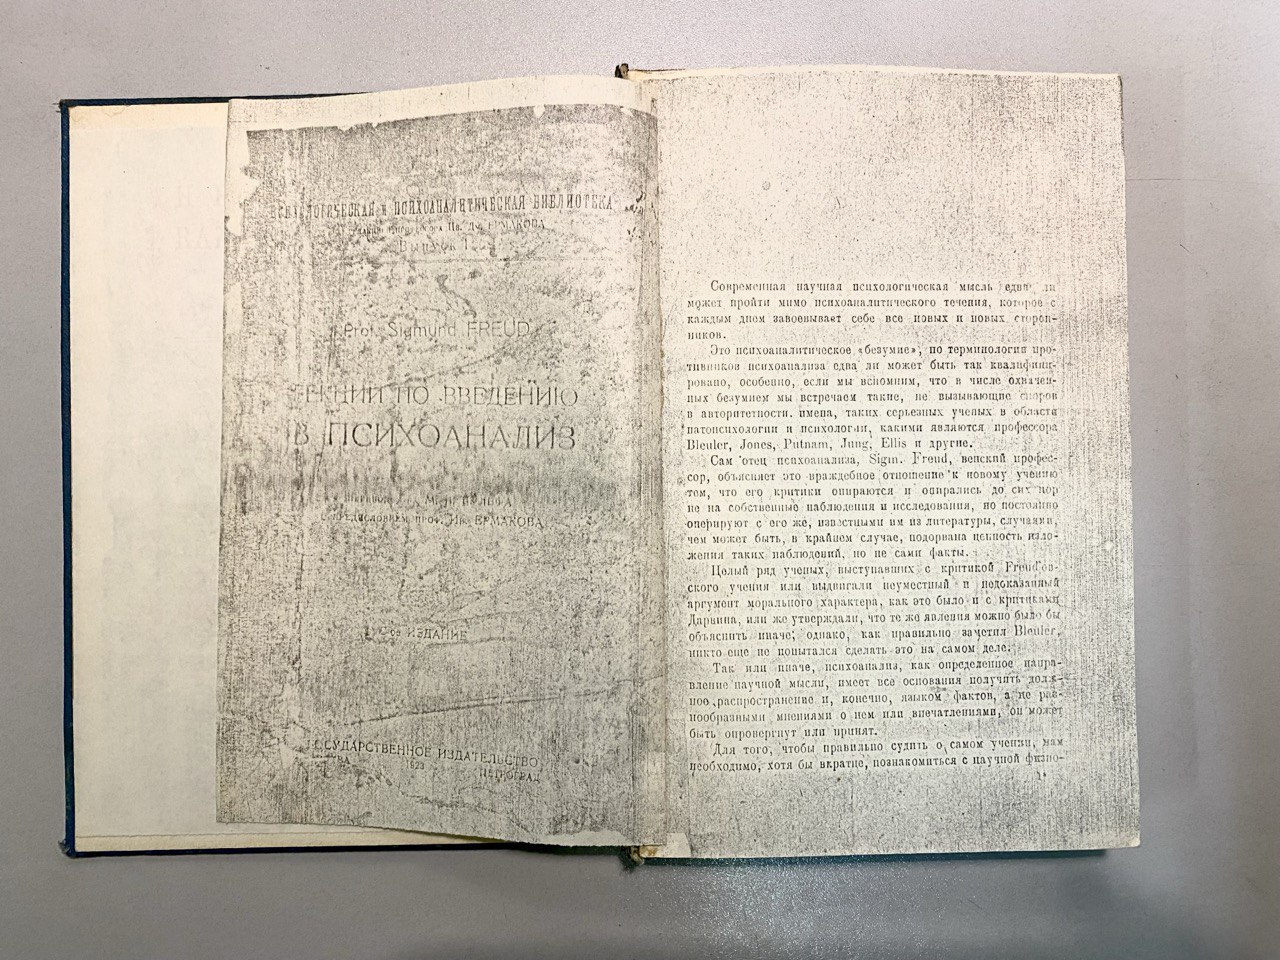 ПСИХОЛОГИЧЕСКАЯ и ПСИХОАНАЛИТИЧЕСКАЯ БИБЛИОТЕКА
Ив. Дм. ЕРМАКОВА
Выпуск I
Prof. Sigmund FREUD
ЛЕКЦИИ ПО ВВЕДЕНИЮ
В ПСИХОАНАЛИЗ
ПРЕДИСЛОВИЕМ ПРОФ. ИВ. ЕРМАКОВА
ИЗДАНИЕ
ГОСУДАРСТВЕННОЕ ИЗДАТЕЛЬСТВО
1923 ПЕТРОГРАД
Современная научная психологическая мысль едва ли
может пройти мимо психоаналитического течения, которое с
каждым днем завоевывает себе все новых и новых сторон-
ников.
Это психоаналитическое «безумие», по терминологии про-
тивников психоанализа едва ли может быть так квалифици-
ровано, особенно, если мы вспомним, что в числе охвачен-
ных безумием мы встречаем такие, не вызывающие споров
в авторитетности, имена, таких серьезных ученых в области
патопсихологии и психологии, какими являются профессора
Bleuler, Jones, Putnam, Jung, Ellis и другие.
Сам отец психоанализа, Sigm. Freud, венский профес-
сор, объясняет это враждебное отношение к новому учению
тем, что его критики опираются и опирались до сих пор
не на собственные наблюдения и исследования, но постоянно
оперируют с его же, известными им из литературы, случаями,
чем может быть, в крайнем случае, подорвана ценность изло-
жения таких наблюдений, но не сами факты.
Целый ряд ученых, выступавших с критикой Freud'ов-
ского учения или выдвигали неуместный и недоказанный
аргумент морального характера, как это было и с критиками
Дарвина, или же утверждали, что те же явления можно было бы
объяснить иначе; однако, как правильно заметил Bleuler,
никто еще не попытался сделать это на самом деле.
Так или иначе, психоанализ, как определенное напра-
вление научной мысли, имеет все основания получить долж-
ное распространение и, конечно, языком фактов, а не раз-
нообразными мнениями о нем или впечатлениями, он может
быть опровергнут или принят.
Для того, чтобы правильно судить о самом учении, нам
необходимо, хотя бы вкратце, познакомиться с научной физио-